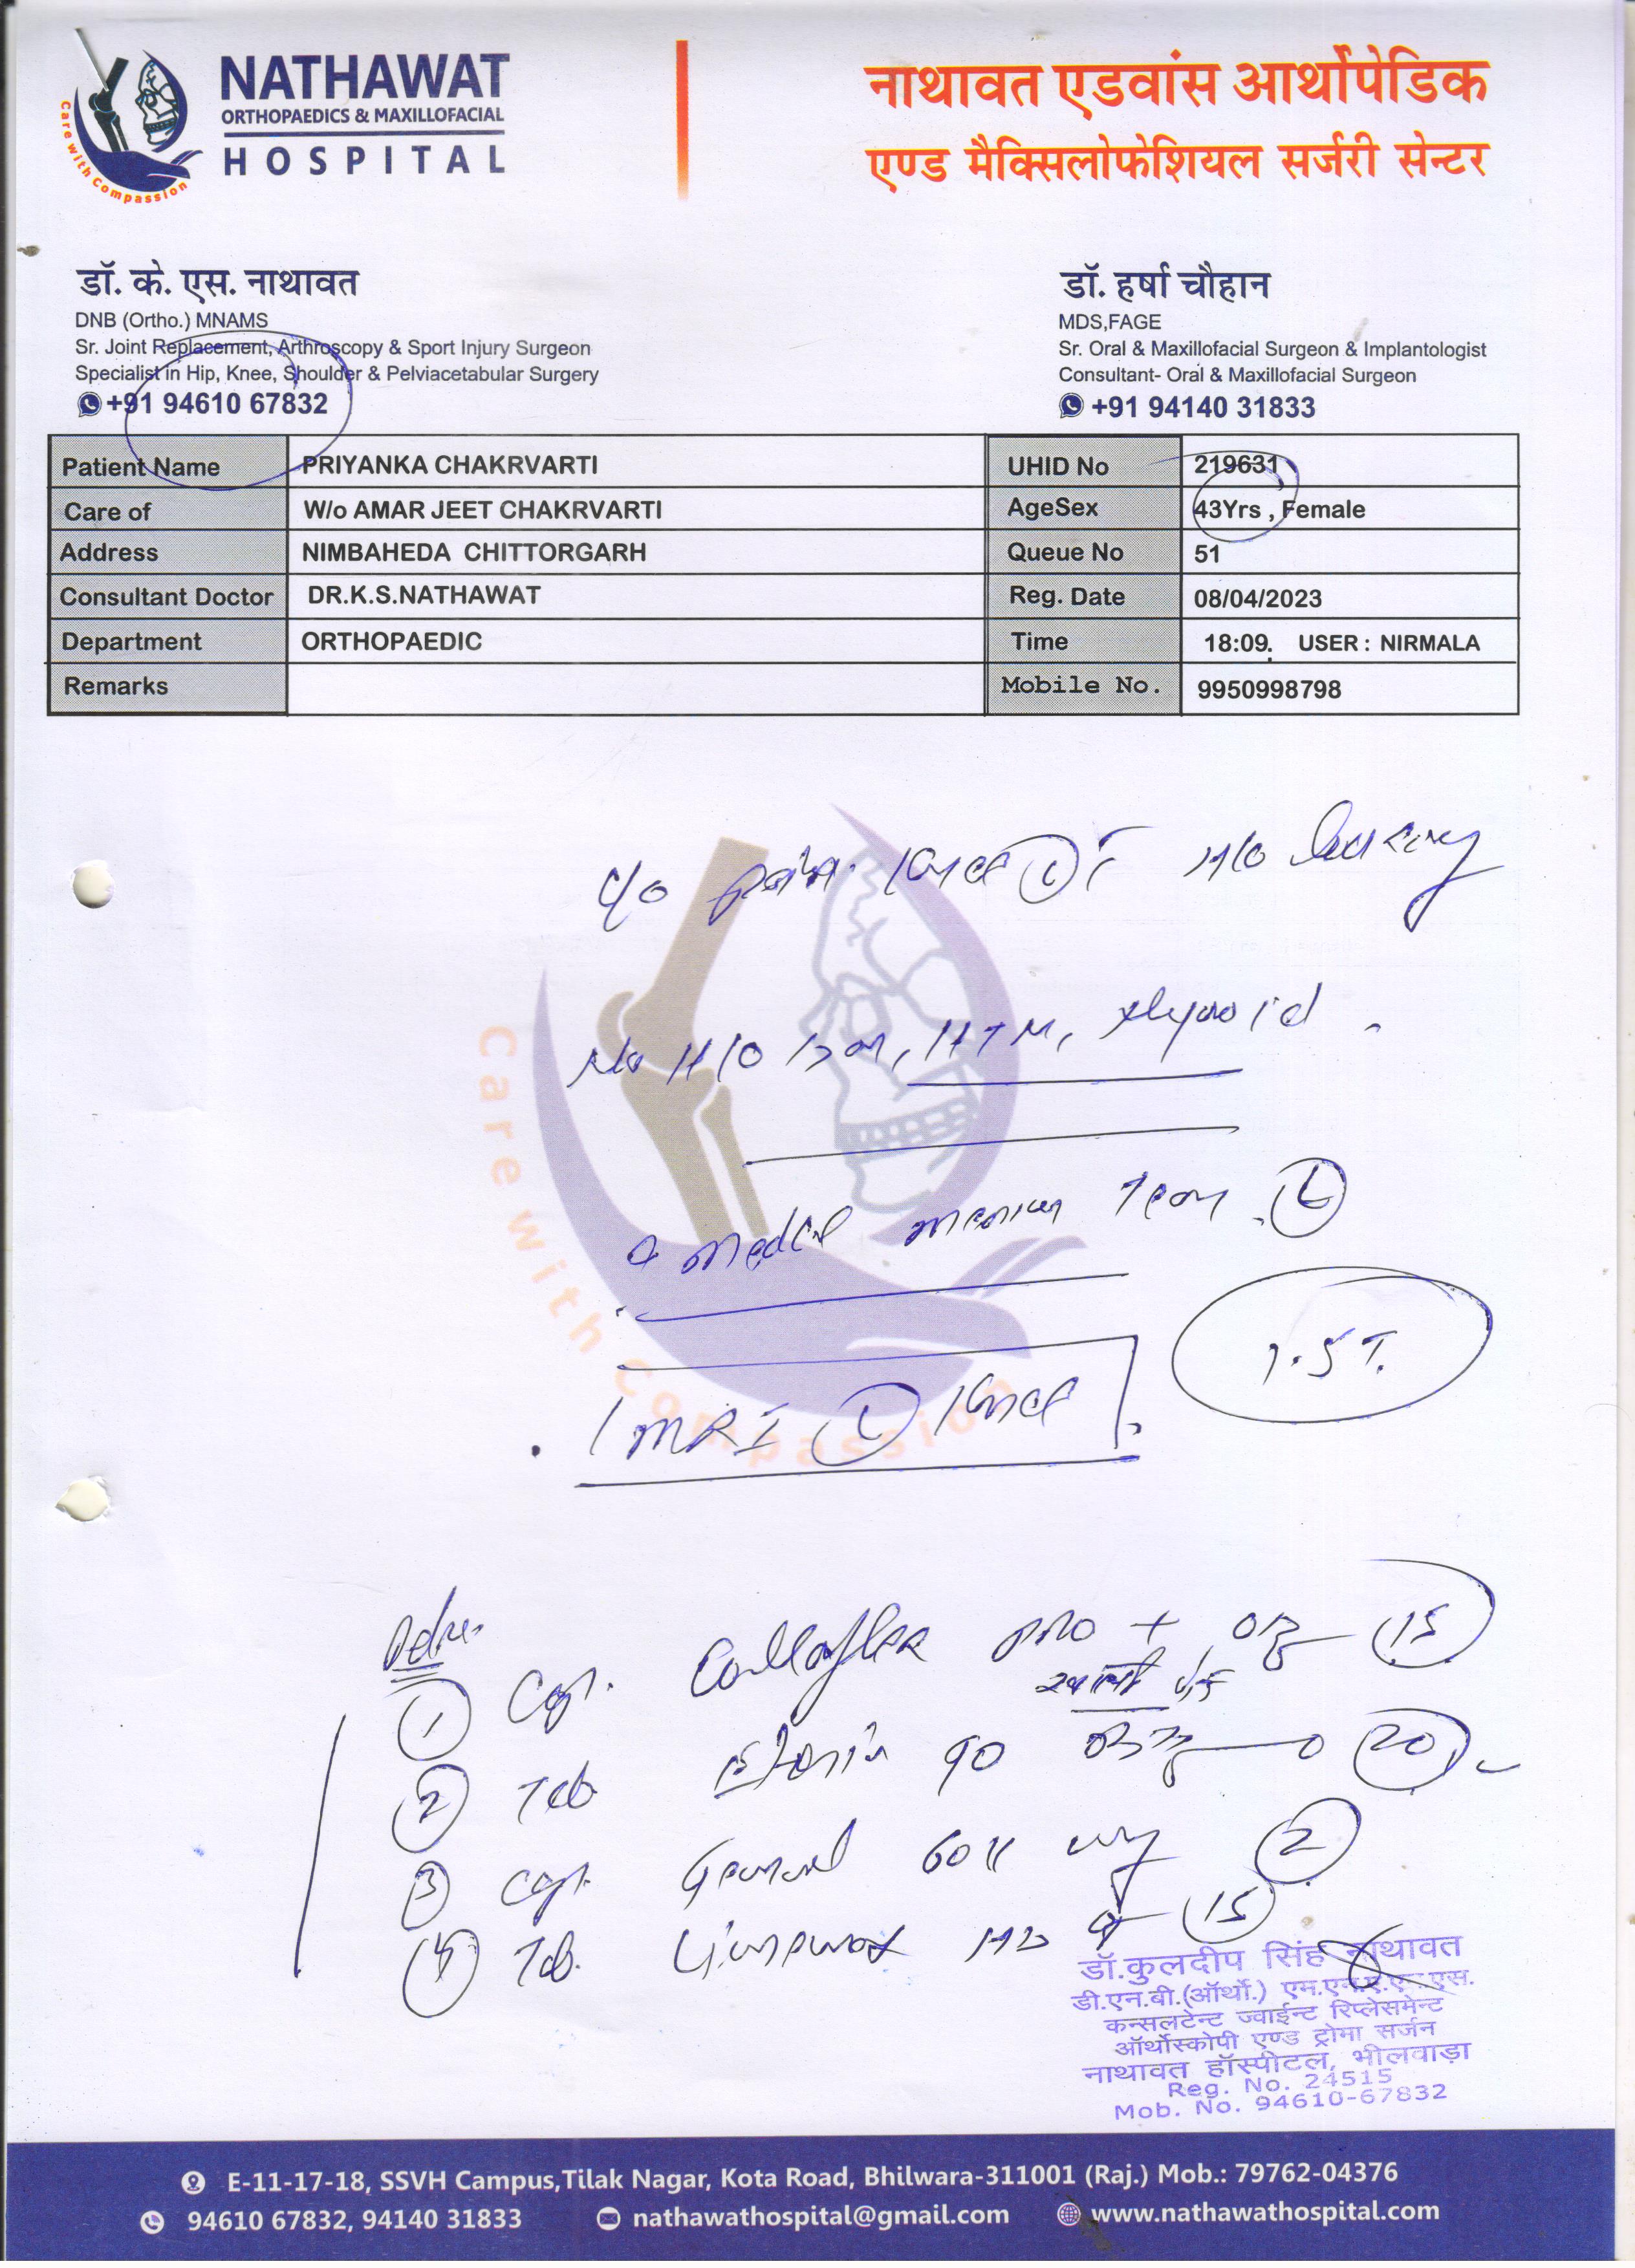 NATHAWAT
ORTHOPAEDICS & MAXILLOFACIAL
HOSPITAL
Care with Compassion
नाथावत एडवांस आर्थोपेडिक
एण्ड मैक्सिलोफेशियल सर्जरी सेन्टर
डॉ. के. एस. नाथावत
DNB (Ortho.) MNAMS
Sr. Joint Replacement, Arthroscopy & Sport Injury Surgeon
Specialist in Hip, Knee, Shoulder & Pelviacetabular Surgery
+91 94610 67832
डॉ. हर्षा चौहान
MDS,FAGE
Sr. Oral & Maxillofacial Surgeon & Implantologist
Consultant- Oral & Maxillofacial Surgeon
+91 94140 31833
Patient Name PRIYANKA CHAKRVARTI UHID No 219631
Care of W/o AMAR JEET CHAKRVARTI AgeSex 43Yrs , Female
Address NIMBAHEDA CHITTORGARH Queue No 51
Consultant Doctor DR.K.S.NATHAWAT Reg. Date 08/04/2023
Department ORTHOPAEDIC Time 18:09. USER : NIRMALA
Remarks Mobile No. 9950998798
c/o pain Knee L H/O locking
No H/O DM, HTN, thyroid
Care with Compassion
Tear L
1.5 T.
MRI L Knee
Adv.
1 Cap. Collaflex Pro + 15
2 Tab 90 20
3 Cap. 60K 2
4 Tab. 15
डॉ.कुलदीप सिंह नाथावत
डी.एन.बी.(ऑर्थो.) एम.एन.ए.एम.एस.
कन्सलटेन्ट ज्वाईन्ट रिप्लेसमेन्ट
ऑर्थोस्कोपी एण्ड ट्रोमा सर्जन
नाथावत हॉस्पीटल, भीलवाड़ा
Reg. No. 24515
Mob. No. 94610-67832
E-11-17-18, SSVH Campus,Tilak Nagar, Kota Road, Bhilwara-311001 (Raj.) Mob.: 79762-04376
94610 67832, 94140 31833 nathawathospital@gmail.com www.nathawathospital.com